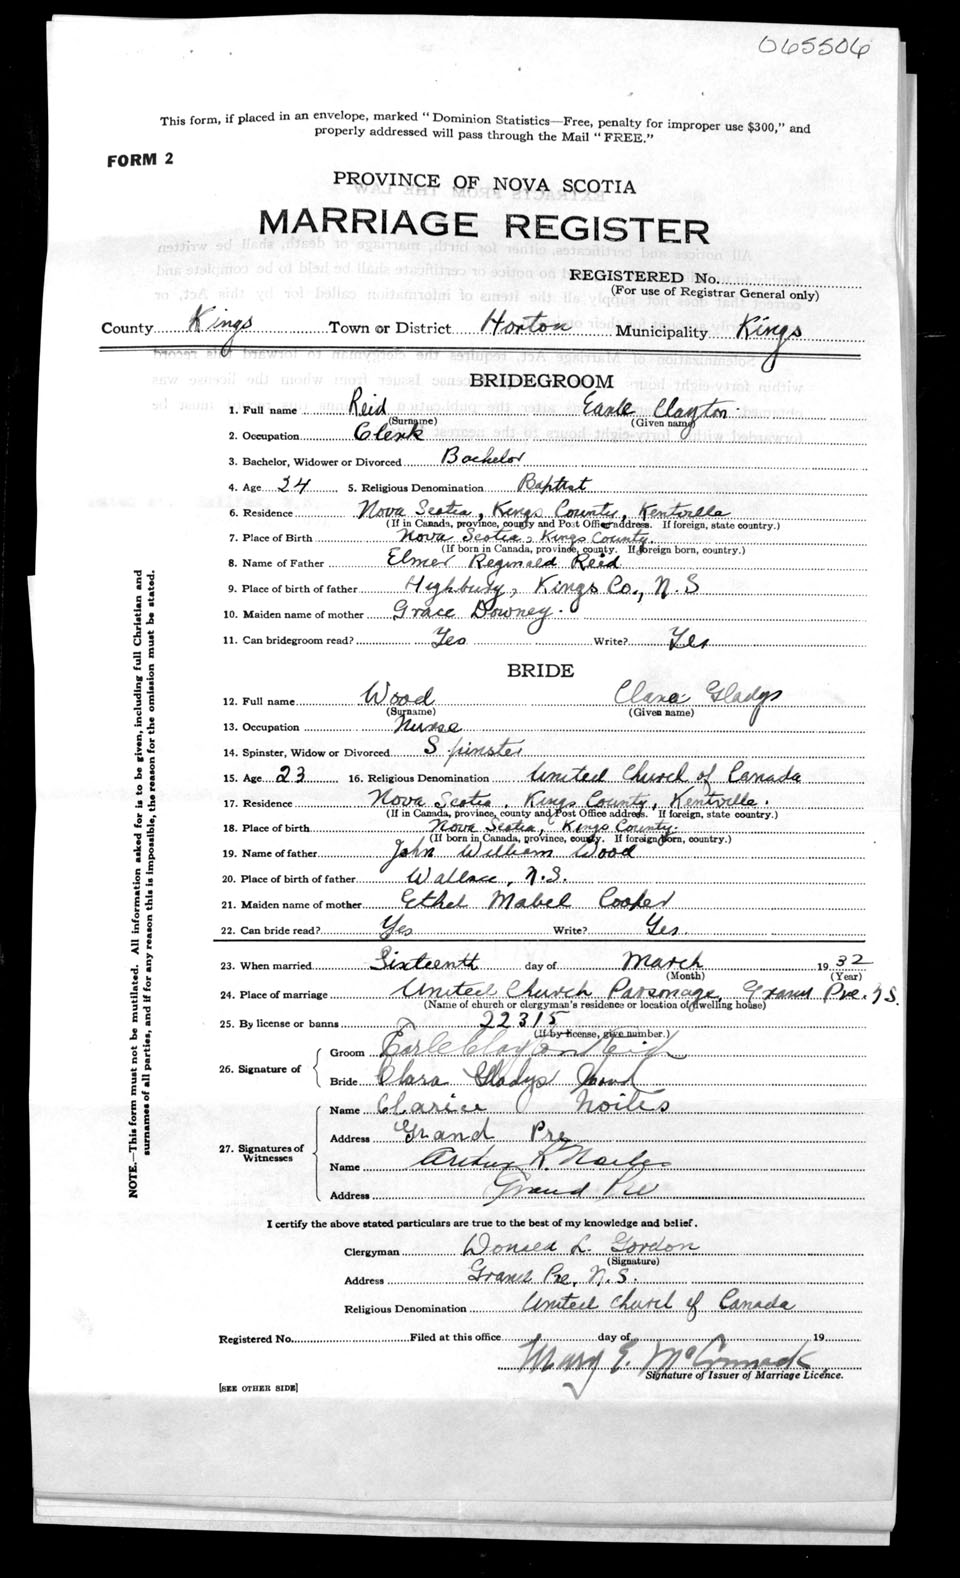 065506
This form, if placed in an envelope, marked "Dominion Statistics—Free, penalty for improper use $300," and
properly addressed will pass through the Mail "FREE."
FORM 2
PROVINCE OF NOVA SCOTIA
MARRIAGE REGISTER
REGISTERED No.
(For use of Registrar General only)
County Kings Town or District Horton Municipality Kings
BRIDEGROOM
1. Full name Reid Earle Clayton
(Surname) (Given name)
2. Occupation Clerk
3. Bachelor, Widower or Divorced Bachelor
4. Age 24 5. Religious Denomination Baptist
6. Residence Nova Scotia, Kings County, Kentville
(If in Canada, province, county and Post Office address. If foreign, state country.)
7. Place of Birth Nova Scotia, Kings County.
(If born in Canada, province, county. If foreign born, country.)
8. Name of Father Elmer Reginald Reid
9. Place of birth of father Highbury, Kings Co., N.S
10. Maiden name of mother Grace Downey.
11. Can bridegroom read? Yes Write? Yes
BRIDE
12. Full name Wood Clara Gladys
(Surname) (Given name)
13. Occupation Nurse
14. Spinster, Widow or Divorced Spinster
15. Age 23 16. Religious Denomination United Church of Canada
17. Residence Nova Scotia, Kings County, Kentville.
(If in Canada, province, county and Post Office address. If foreign, state country.)
18. Place of birth Nova Scotia, Kings County.
(If born in Canada, province, county. If foreign born, country.)
19. Name of father John William Wood
20. Place of birth of father Wallace, N.S.
21. Maiden name of mother Ethel Mabel Cooper
22. Can bride read? Yes Write? Yes
23. When married Sixteenth day of March 1932
(Month) (Year)
24. Place of marriage United Church Parsonage, Grand Pre. N.S.
(Name of church or clergyman's residence or location of dwelling house)
25. By license or banns 22315
(If by license, give number.)
26. Signature of
Groom Earle Clayton Reid
Bride Clara Gladys Wood
27. Signatures of Witnesses
Name Clarice Noiles
Address Grand Pre
Name Arthur R. Noiles
Address Grand Pre
I certify the above stated particulars are true to the best of my knowledge and belief.
Clergyman Donald L. Gordon
(Signature)
Address Grand Pre, N.S.
Religious Denomination United Church of Canada
Registered No. Filed at this office day of 19
Mary E. McCormack
Signature of Issuer of Marriage Licence.
[SEE OTHER SIDE]
NOTE.—This form must not be mutilated. All information asked for is to be given, including full Christian and
surnames of all parties, and if for any reason this is impossible, the reason for the omission must be stated.